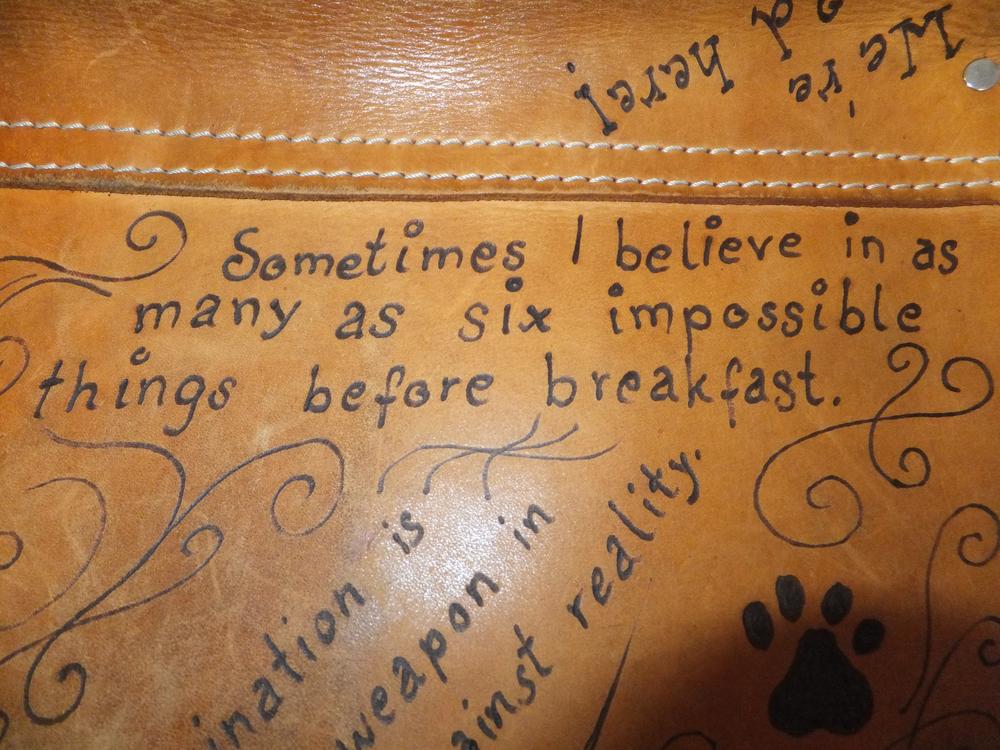 We're
here!
Sometimes I believe in as
many as six impossible
things before breakfast.
is
weapon in
reality.